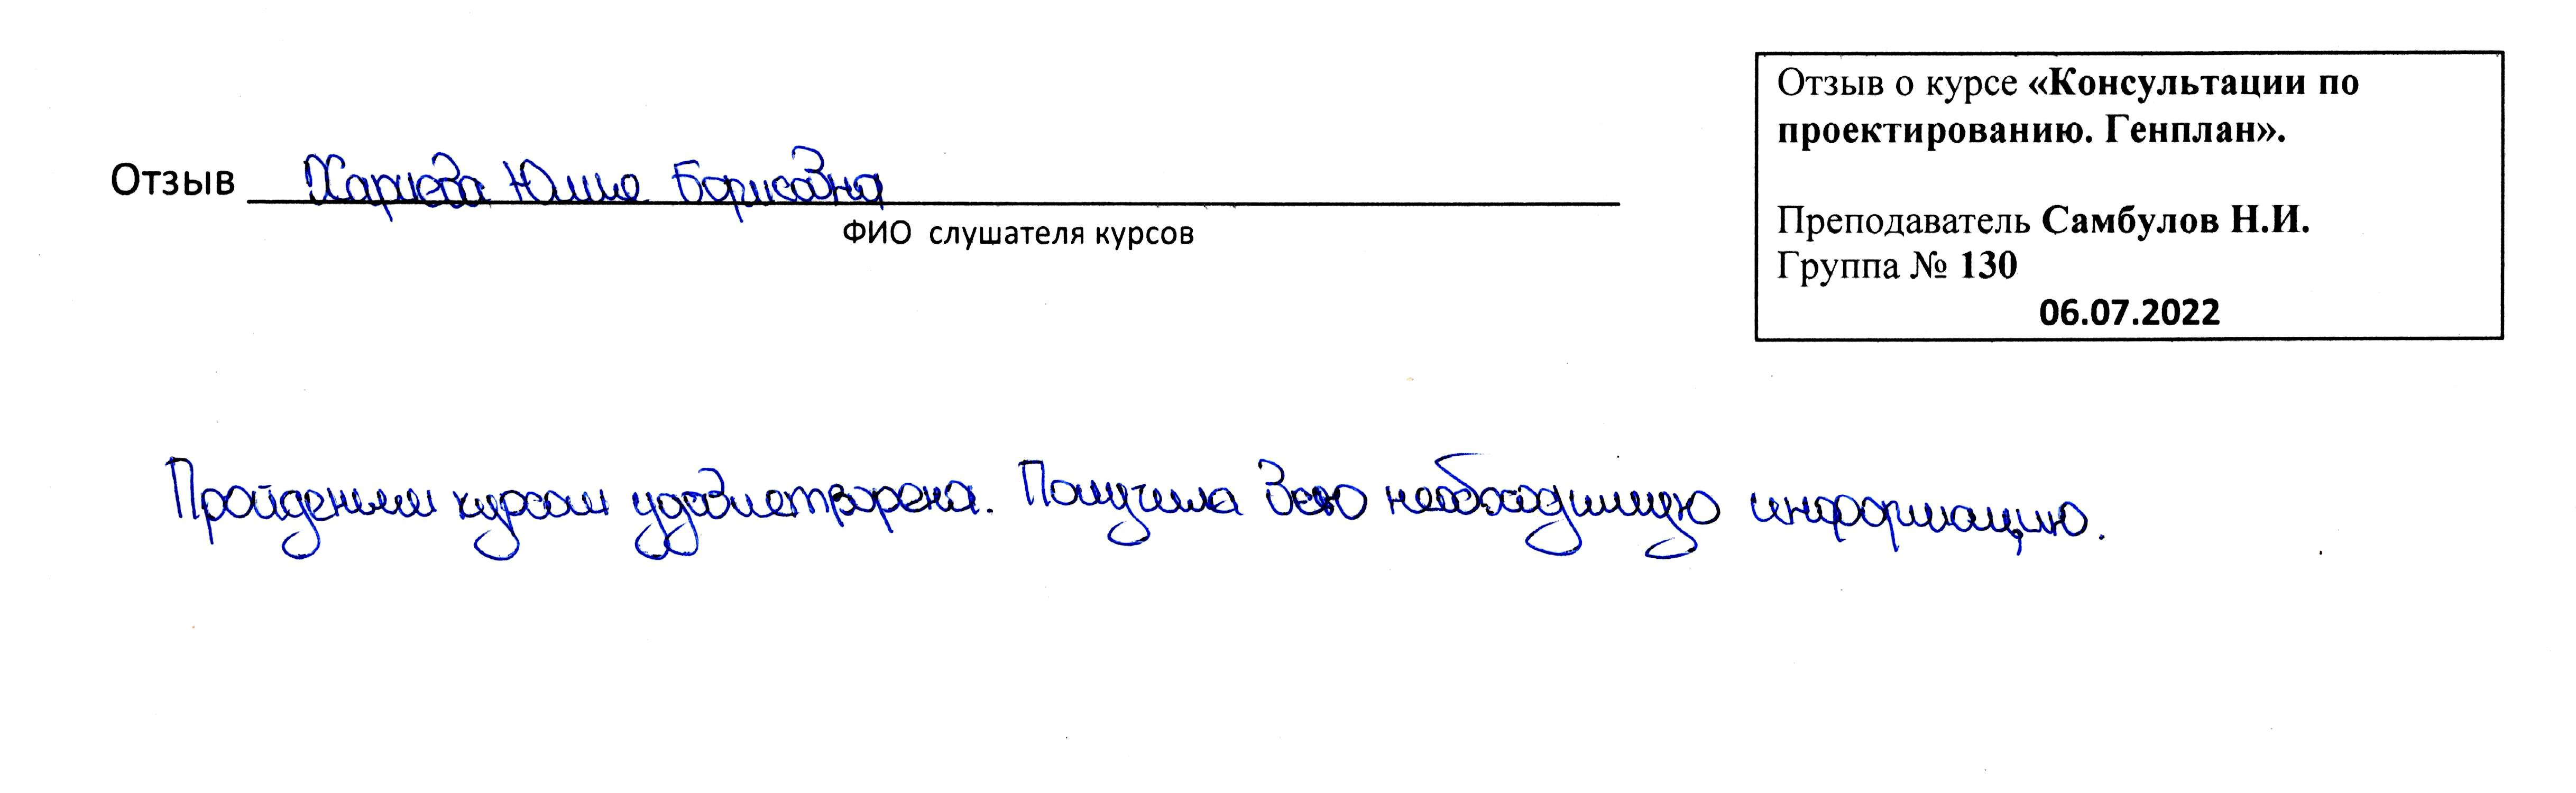 Отзыв о курсе «Консультации по
проектированию. Генплан».
Отзыв Юлия Борисовна
ФИО слушателя курсов
Преподаватель Самбулов Н.И.
Группа № 130
06.07.2022
Пройденным курсом удовлетворена. Получила всю необходимую информацию.